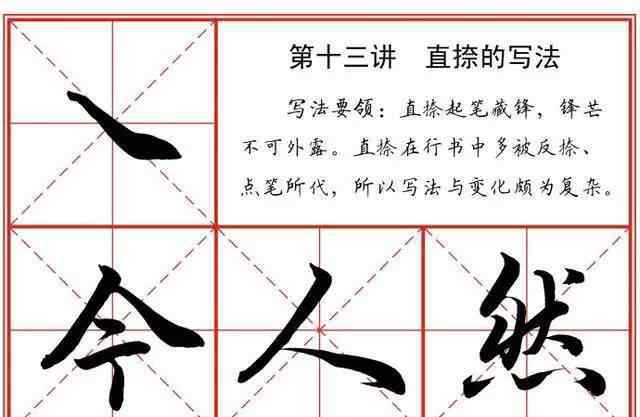 第十三讲 直捺的写法
写法要领：直捺起笔藏锋，锋芒
不可外露。直捺在行书中多被反捺、
点笔所代，所以写法与变化颇为复杂。
今人然